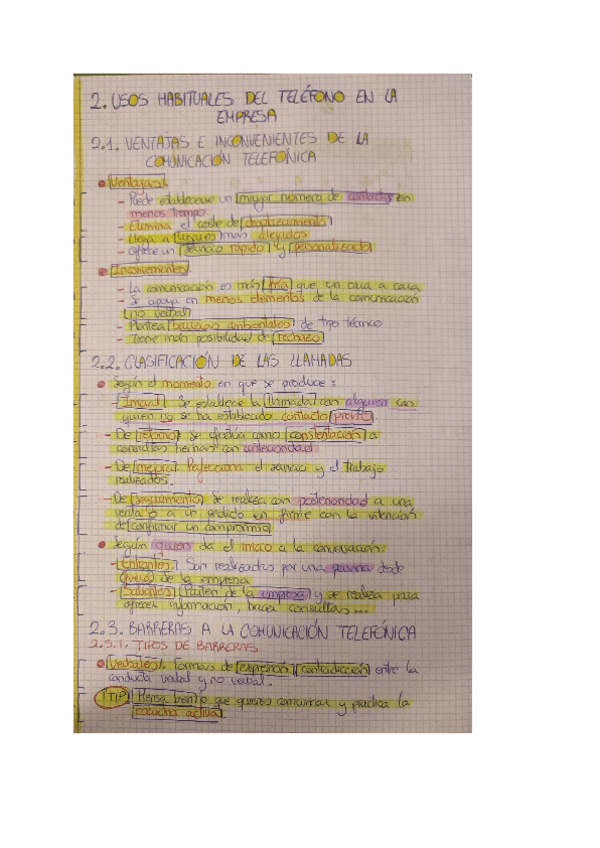 2. USOS HABITUALES DEL TELÉFONO EN LA
EMPRESA
2.1. VENTAJAS E INCONVENIENTES DE LA
COMUNICACIÓN TELEFÓNICA
• Ventajas:
- Puede establecerse un mayor número de contactos en
menos tiempo
- Elimina el coste de desplazamiento
- Llega a lugares más alejados
- Ofrece un servicio rápido y personalizado
• Inconvenientes:
- La comunicación es más fría que en cara a cara
- Se apoya en menos elementos de la comunicación
no verbal
- Plantea barreras ambientales de tipo técnico
- Tiene más posibilidad de rechazo
2.2. CLASIFICACIÓN DE LAS LLAMADAS
• Según el momento en que se produce:
- Inicial: Se establece la llamada con alguien con
quien no se ha establecido contacto previo.
- De retorno: Se efectúa como contestación a
consultas hechas con anterioridad.
- De mejora: Perfeccionar el servicio y el trabajo
realizados.
- De seguimiento: Se realiza con posterioridad a una
venta o a un pedido en firme con la intención
de confirmar un compromiso
• Según quien da el inicio a la conversación:
- Entrantes: Son realizadas por una persona desde
fuera de la empresa
- Salientes: Parten de la empresa y se realiza para
ofrecer información, hacer consultas...
2.3. BARRERAS A LA COMUNICACIÓN TELEFÓNICA
2.3.1. TIPOS DE BARRERAS
• Verbales: formas de expresión, contradicción entre la
conducta verbal y no verbal.
TIP Piensa bien lo que quieres comunicar y practica la
escucha activa